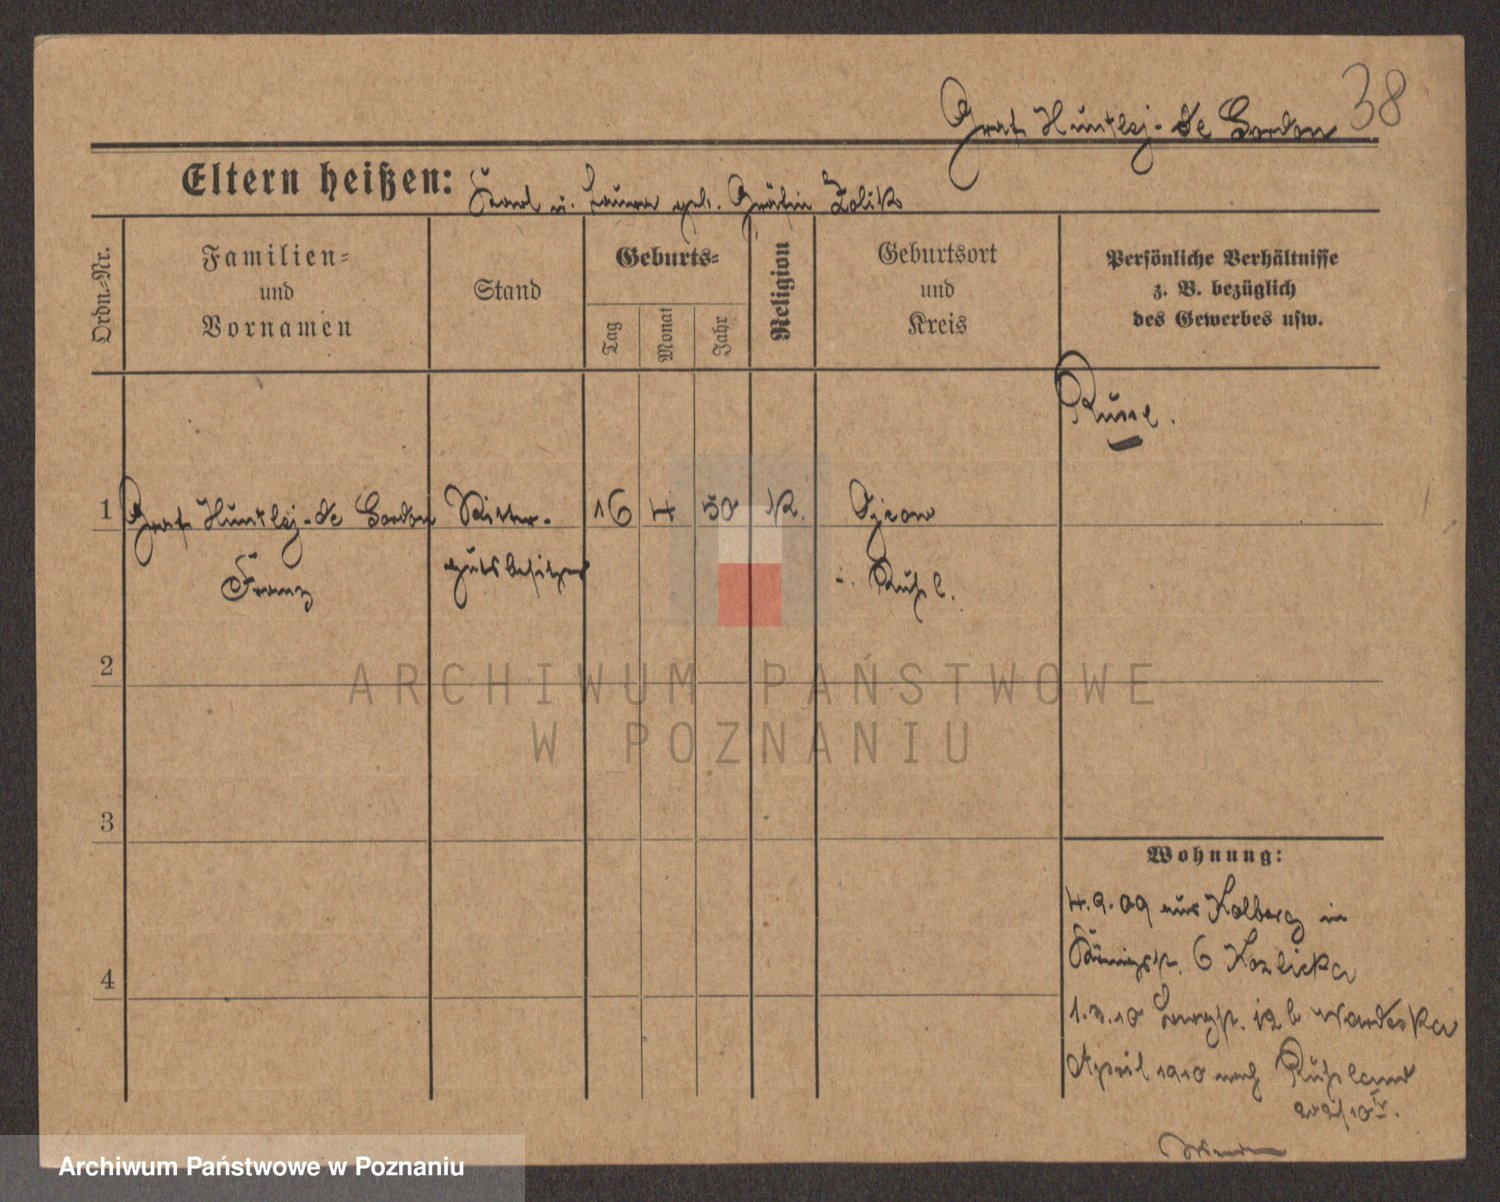 38
Graf Huntlej-de Gordon
Eltern heißen: Karl u. Laura geb. Gräfin Zolik
Ordn.-Nr.
Familien-
und
Vornamen
Stand
Geburts-
Tag
Monat
Jahr
Religion
Geburtsort
und
Kreis
Persönliche Verhältnisse
z. B. bezüglich
des Gewerbes usw.
Russe.
1 Graf Huntlej-de Gordon Ritter- 16 4 50 K.
Franz gutsbesitzer i. Rußl.
2
3
4
Wohnung:
4.9.09 aus Kolberg in
Königstr. 6 Kozlicka
1.3.10 Langstr. 12 b
April 1910 nach Rußland
ARCHIWUM PAŃSTWOWE
W POZNANIU
Archiwum Państwowe w Poznaniu